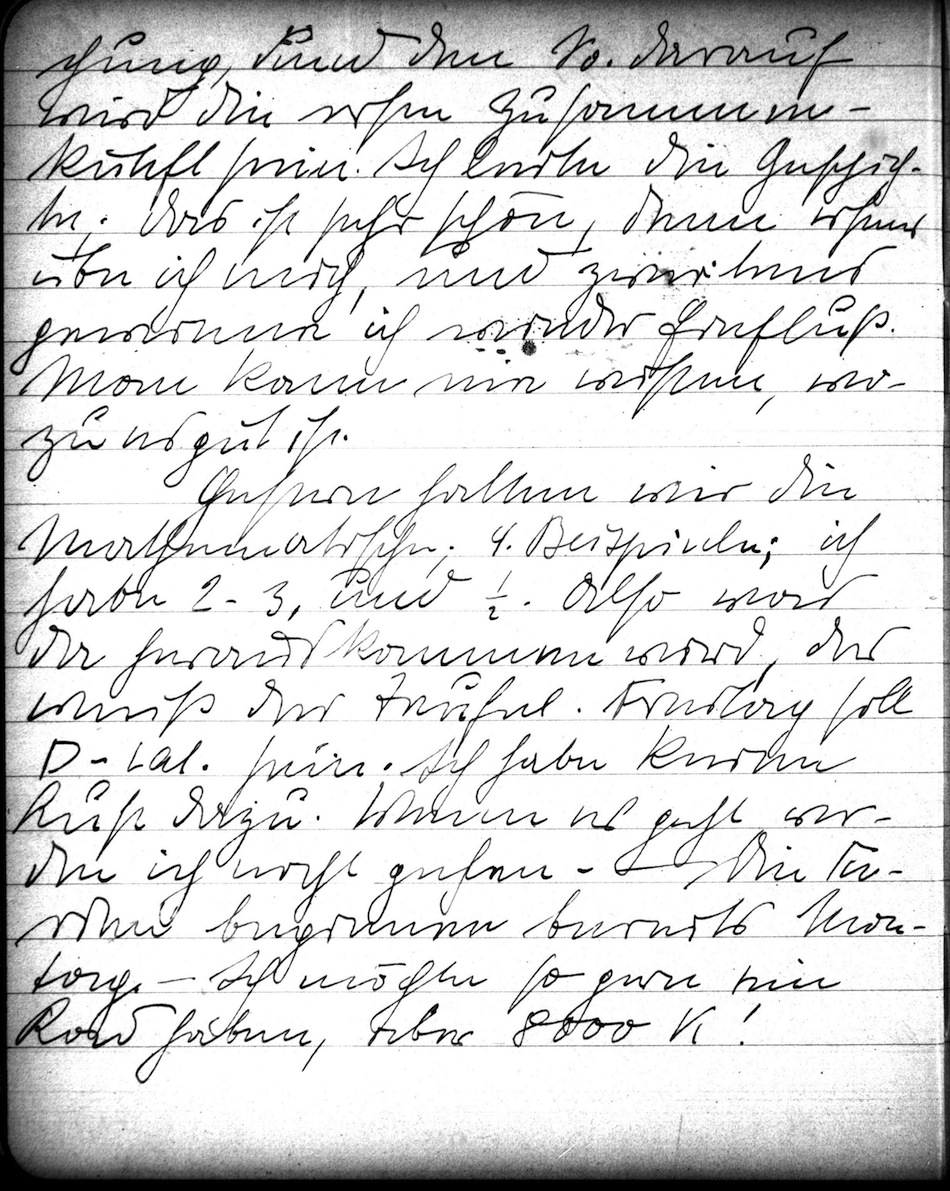 chung, und den So. darauf
wird die erste Zusammen-
kunft sein. Ich leite die Geschich-
te. Das ist sehr schön, denn erstens
übe ich mich, und zweitens
gewinne ich wieder Einfluß.
Man kann nie wissen, wo-
zu es gut ist.
Gestern hatten wir die
Mathematische. 4. Beispiele; ich
habe 2-3, und ½. Also was
da herauskommen wird, das
weiß der Teufel. Freitag soll
D-Lat. sein. Ich habe keine
Lust dazu. Wenn es geht wer-
de ich nicht gehen. - Die Fe-
rien beginnen bereits Mon-
tag. - Ich möchte so gern ein
Rad haben, aber 8000 K!